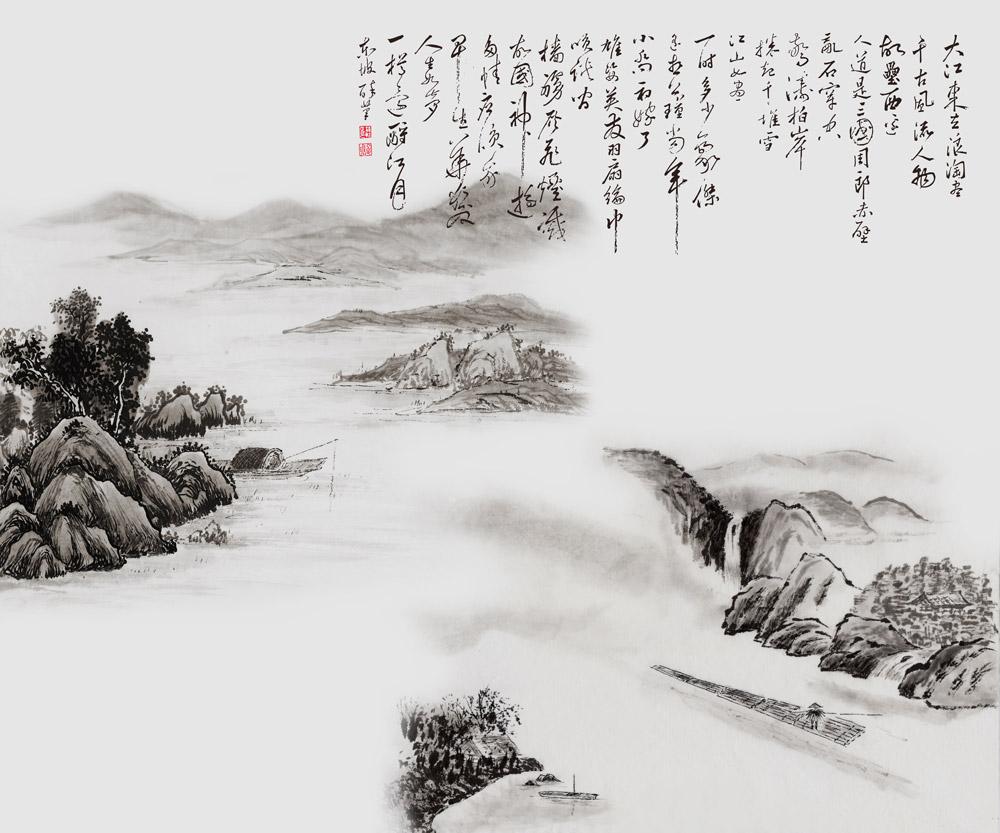 大江東去浪淘盡
千古風流人物
故壘西邊
人道是三國周郎赤壁
亂石穿空
驚濤拍岸
捲起千堆雪
江山如畫
一時多少豪傑
遙想公瑾當年
小喬初嫁了
雄姿英發羽扇綸巾
咲談間
檣櫓灰飛煙滅
故國神遊
多情應笑我
早生華髮
人生如夢
一樽還酹江月
東坡醉筆